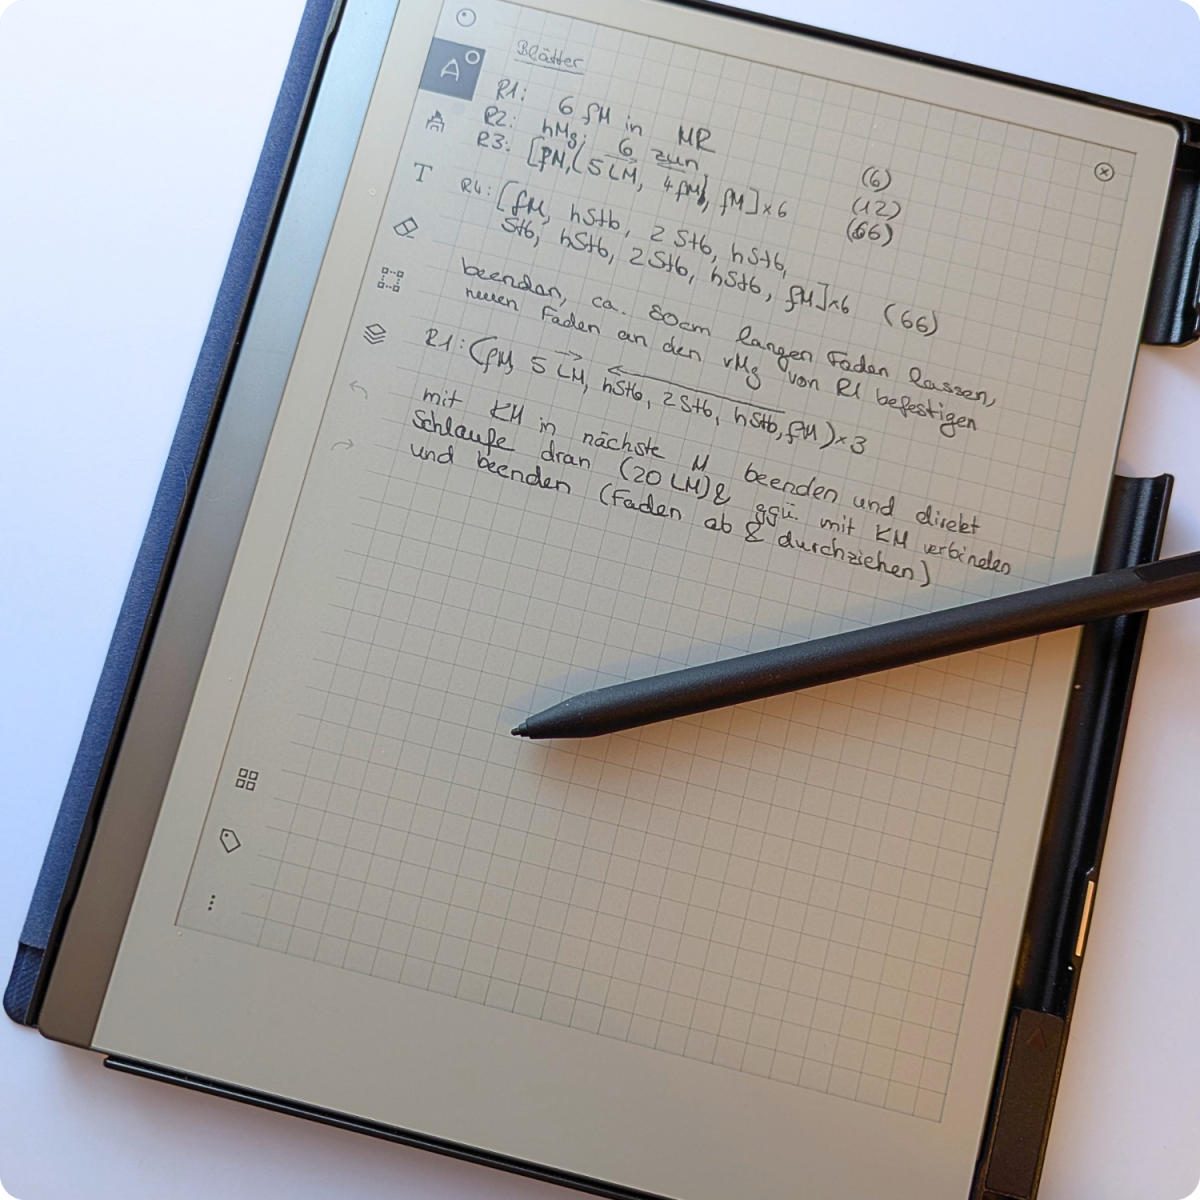 Blätter
R1: 6 fM in MR (6)
R2: hMg; 6 zun (12)
R3: [fM, (5 LM, 4 fM), fM] x6 (66)
R4: [fM, hStb, 2 Stb, hStb,
Stb, hStb, 2 Stb, hStb, fM] x6 (66)
beenden, ca. 80cm langen Faden lassen,
neuen Faden an den vMg von R1 befestigen
R1: (fM, 5 LM, hStb, 2 Stb, hStb, fM) x3
mit KM in nächste M beenden und direkt
Schlaufe dran (20 LM) & ggü. mit KM verbinden
und beenden (Faden ab & durchziehen)